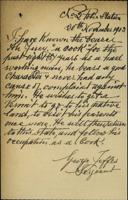 November 1903
I have known the bearer
Ah Gney, a cook for the
past eight years he is a hard
working man, he bears a good
Character & never had any
cause of complaint against
him. He wishes to get a
Permit to go to his native
land, to visit his friends
once more. He will then return
to this State and follow his
occupation as a Cook.
George
Sergeant